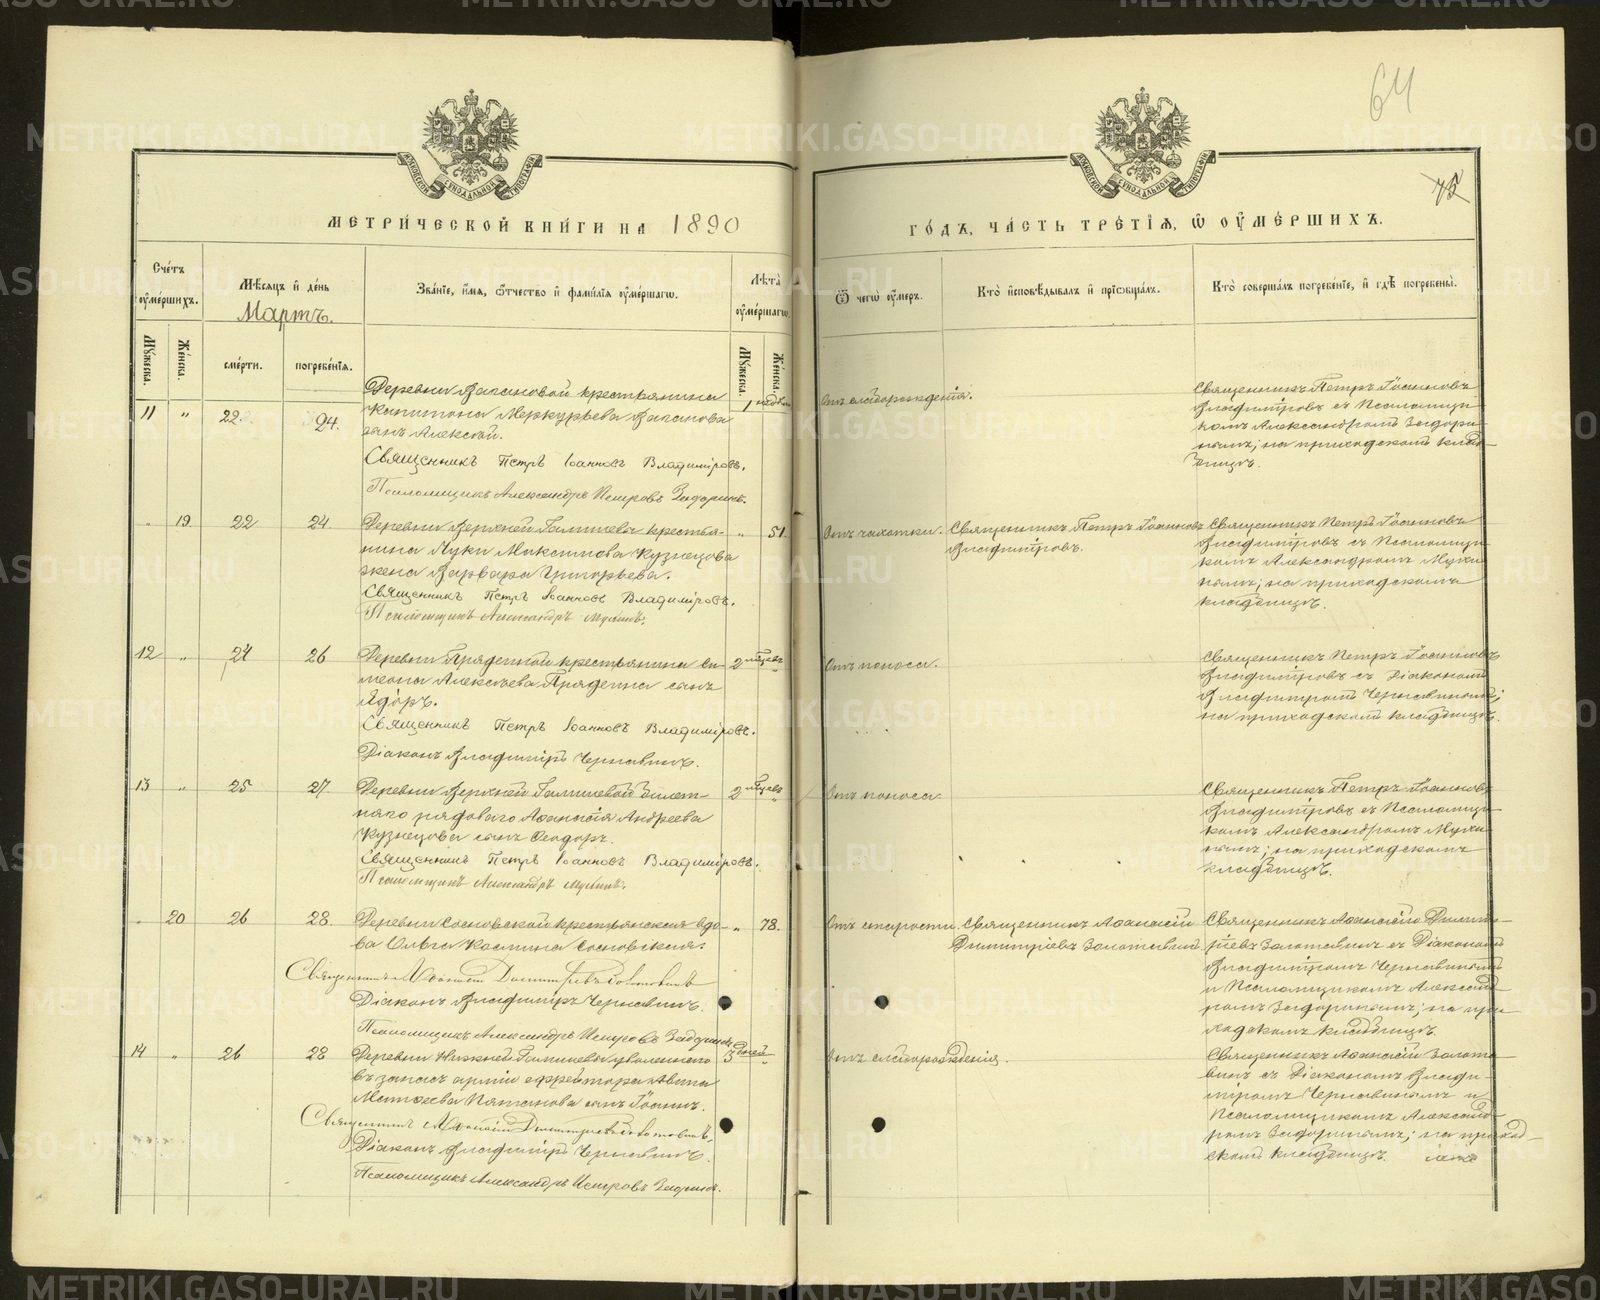 64
75
МЕТРИ́ЧЕСКОЙ КНИ́ГИ НА 1890
ГО́ДЪ, ЧА́СТЬ ТРЕ́ТІѦ, Ѡ ОУ҆МЕ́РШИХЪ.
Сче́тъ оу҆ме́ршихъ.
Мѣ́сяцъ и҆ де́нь
Мартъ.
Зва́ніе, и҆́мя, ѻ҆́тчество и҆ фами́лія оу҆ме́ршагѡ.
Лѣ́та оу҆ме́ршагѡ.
Му́жеска.
Же́нска.
сме́рти.
погребе́нія.
Му́жеска.
Же́нска.
Ѿ чегѡ̀ оу҆́меръ.
Кто̀ и҆сповѣ́дывалъ и҆ прїѡбща́лъ.
Кто̀ соверша́лъ погребе́ніе, и҆ гдѣ̀ погребены̀.
11 " 22 24.
крестьянина
Капитона Меркурьева
сынъ Алексѣй.
Священникъ Петръ Іоанновъ Владиміровъ.
Псаломщикъ Александръ Петровъ Задоринъ.
Отъ слаборожденія.
Священникъ Петръ Іоанновъ
Владиміровъ съ Псаломщи-
комъ Александромъ Задори-
нымъ; на приходскомъ клад-
бищѣ.
" 19 22 24
Деревни Верхней Галишевы крестья-
нина Луки Максимова Кузнецова
жена Варвара Григорьева.
Священникъ Петръ Іоанновъ Владиміровъ.
Псаломщикъ Александръ
" 51.
Отъ чахотки.
Священникъ Петръ Іоанновъ
Владиміровъ.
Священникъ Петръ Іоанновъ
Владиміровъ съ Псаломщи-
комъ Александромъ
на приходскомъ
кладбищѣ.
12 " 24 26
Деревни крестьянина Си-
меона Алексѣева сынъ
Ѳедоръ.
Священникъ Петръ Іоанновъ Владиміровъ.
Діаконъ Владиміръ Чернавинъ.
Отъ поноса.
Священникъ Петръ Іоанновъ
Владиміровъ съ Діакономъ
Владиміромъ Чернавинымъ;
на приходскомъ кладбищѣ.
13 " 25 27
Деревни Верхней Галишевой билет-
наго рядоваго Аѳанасія Андреева
Кузнецова сынъ Ѳеодоръ.
Священникъ Петръ Іоанновъ Владиміровъ.
Псаломщикъ Александръ
Отъ поноса.
Священникъ Петръ Іоанновъ
Владиміровъ съ Псаломщи-
комъ Александромъ
на приходскомъ
кладбищѣ.
" 20 26 28
Деревни Сосновской крестьянская вдо-
ва Ольга Космина Сосновская.
Священникъ Аѳанасій Димитріевъ Золотавинъ
Діаконъ Владиміръ Чернавинъ.
Псаломщикъ Александръ Петровъ Задоринъ
" 78.
Отъ старости
Священникъ Аѳанасій
Димитріевъ Золотавинъ
Священникъ Аѳанасій Димит-
ріевъ Золотавинъ съ Діакономъ
Владиміромъ Чернавинымъ
и Псаломщикомъ Александ-
ромъ Задоринымъ; на при-
ходскомъ кладбищѣ.
14 " 26 28
Деревни Нижней Галишевы уволеннаго
въ запасъ арміи ефрейтора
сынъ Іоаннъ.
Священникъ Аѳанасій Димитріевъ Золотавинъ.
Діаконъ Владиміръ Чернавинъ.
Псаломщикъ Александръ Петровъ Задоринъ.
3 дней
Отъ слаборожденія.
Священникъ Аѳанасій Золота-
винъ съ Діакономъ Влади-
міромъ Чернавинымъ и
Псаломщикомъ Александ-
ромъ Задоринымъ; на приход-
скомъ кладбищѣ.
METRIKI.GASO-URAL.RU